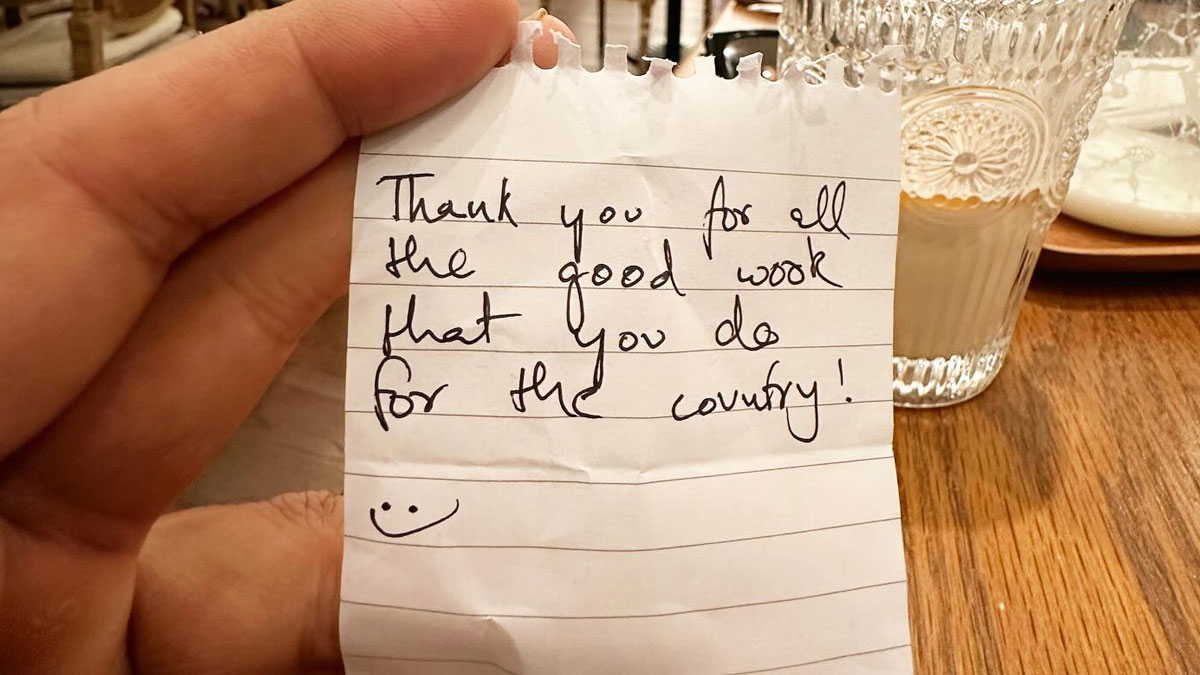 Thank you for all
the good work
that you do
for the country!